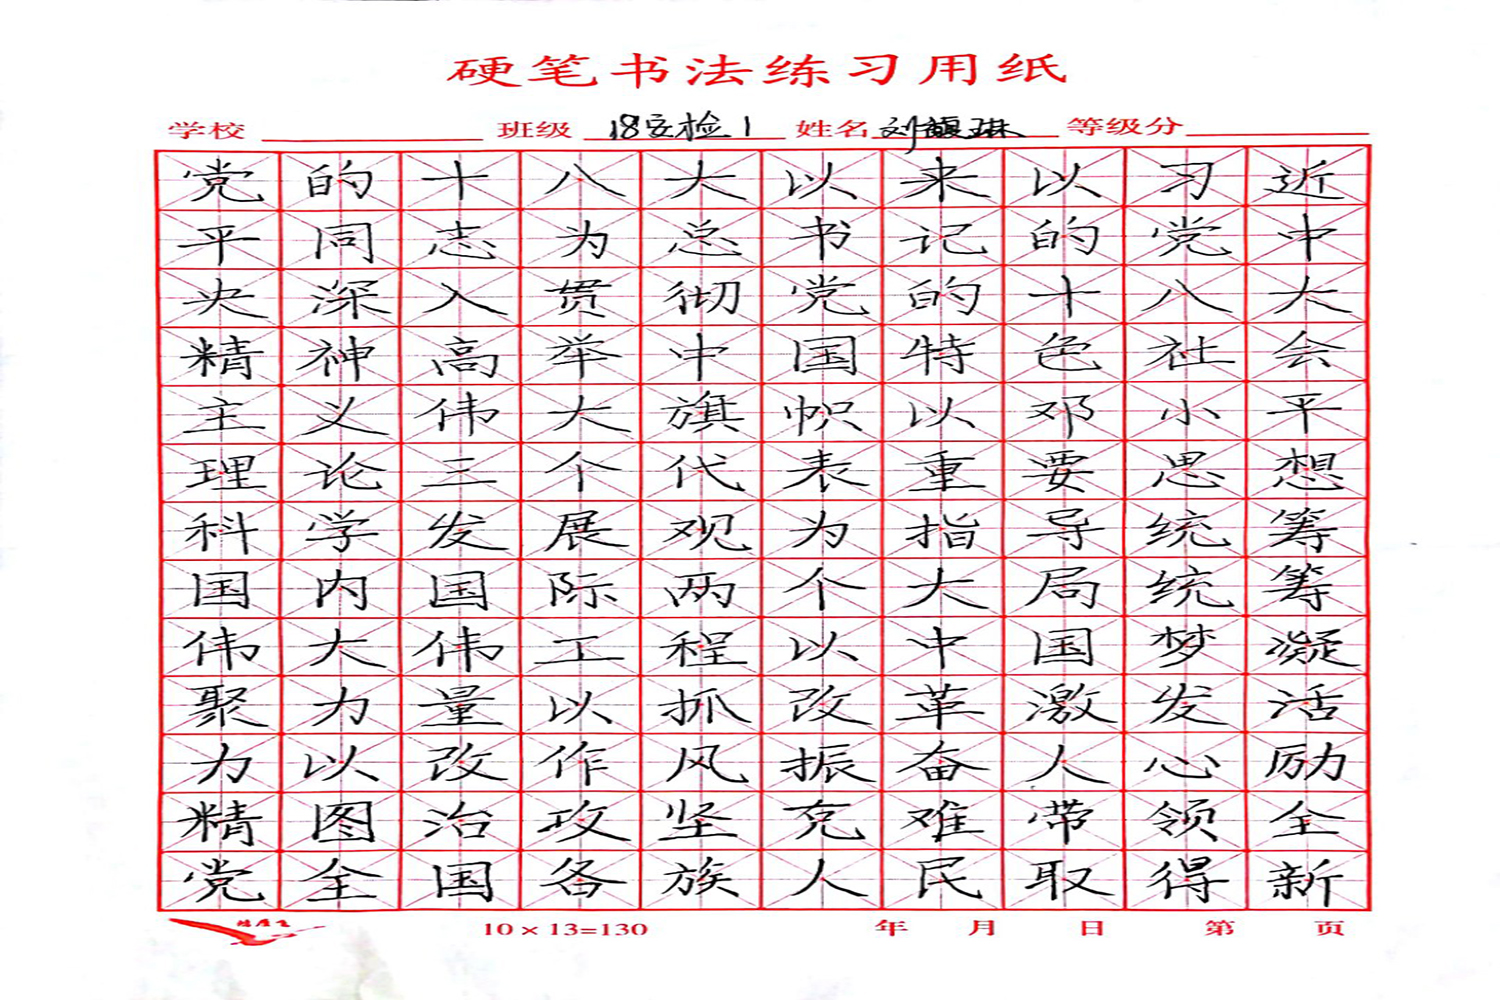 硬笔书法练习用纸
学校 班级 18安检1 姓名 刘馥琳 等级分
党的十八大以来以习近
平同志为总书记的党中
央深入贯彻党的十八大
精神高举中国特色社会
主义伟大旗帜以邓小平
理论三个代表重要思想
科学发展观为指导统筹
国内国际两个大局统筹
伟大伟工程以中国梦凝
聚力量以抓改革激发活
力以改作风振奋人心励
精图治攻坚克难带领全
党全国各族人民取得新
10×13=130 年 月 日 第 页